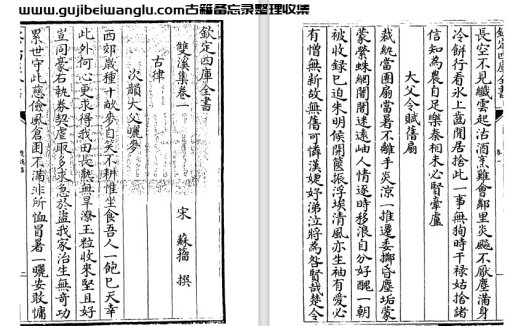 www.gujibeiwanglu.com古籍备忘录整理收集
欽定四庫全書
雙溪集卷一
宋 蘇籀 撰
古律
次韻大父曬麥
西郊歲種十畝麥自笑不耕惟坐食吾人一飽已天幸
此外何心更求得我田衰無旱潦玉粒收來堅且好
豈同豪右執券契虐取多求急於盜我家治生無奇功
累世守此慈儉風倉囷不滿非所恤冒暑一曬安敢慵
欽定四庫全書
長空不見纖雲起沽酒烹雞會鄰里炎飈不厭塵滿身
冷餅行看氷上齒閒居捨此一事無狥時干祿姑捨諸
信知為農自足樂秦相未必賢廬
大父令賦舊扇
裁紈當團扇當暑不離手炎涼一推遷委擲昏塵垢蒙
蒙縈蛛網闇闇迷遠岫人情逐時移浪自分好醜一朝
被收録已迫朱明候開篋振浮埃清風亦生袖有愛必
有憎無新故無舊可憐漢婕妤涕泣將為咎賢哉楚令